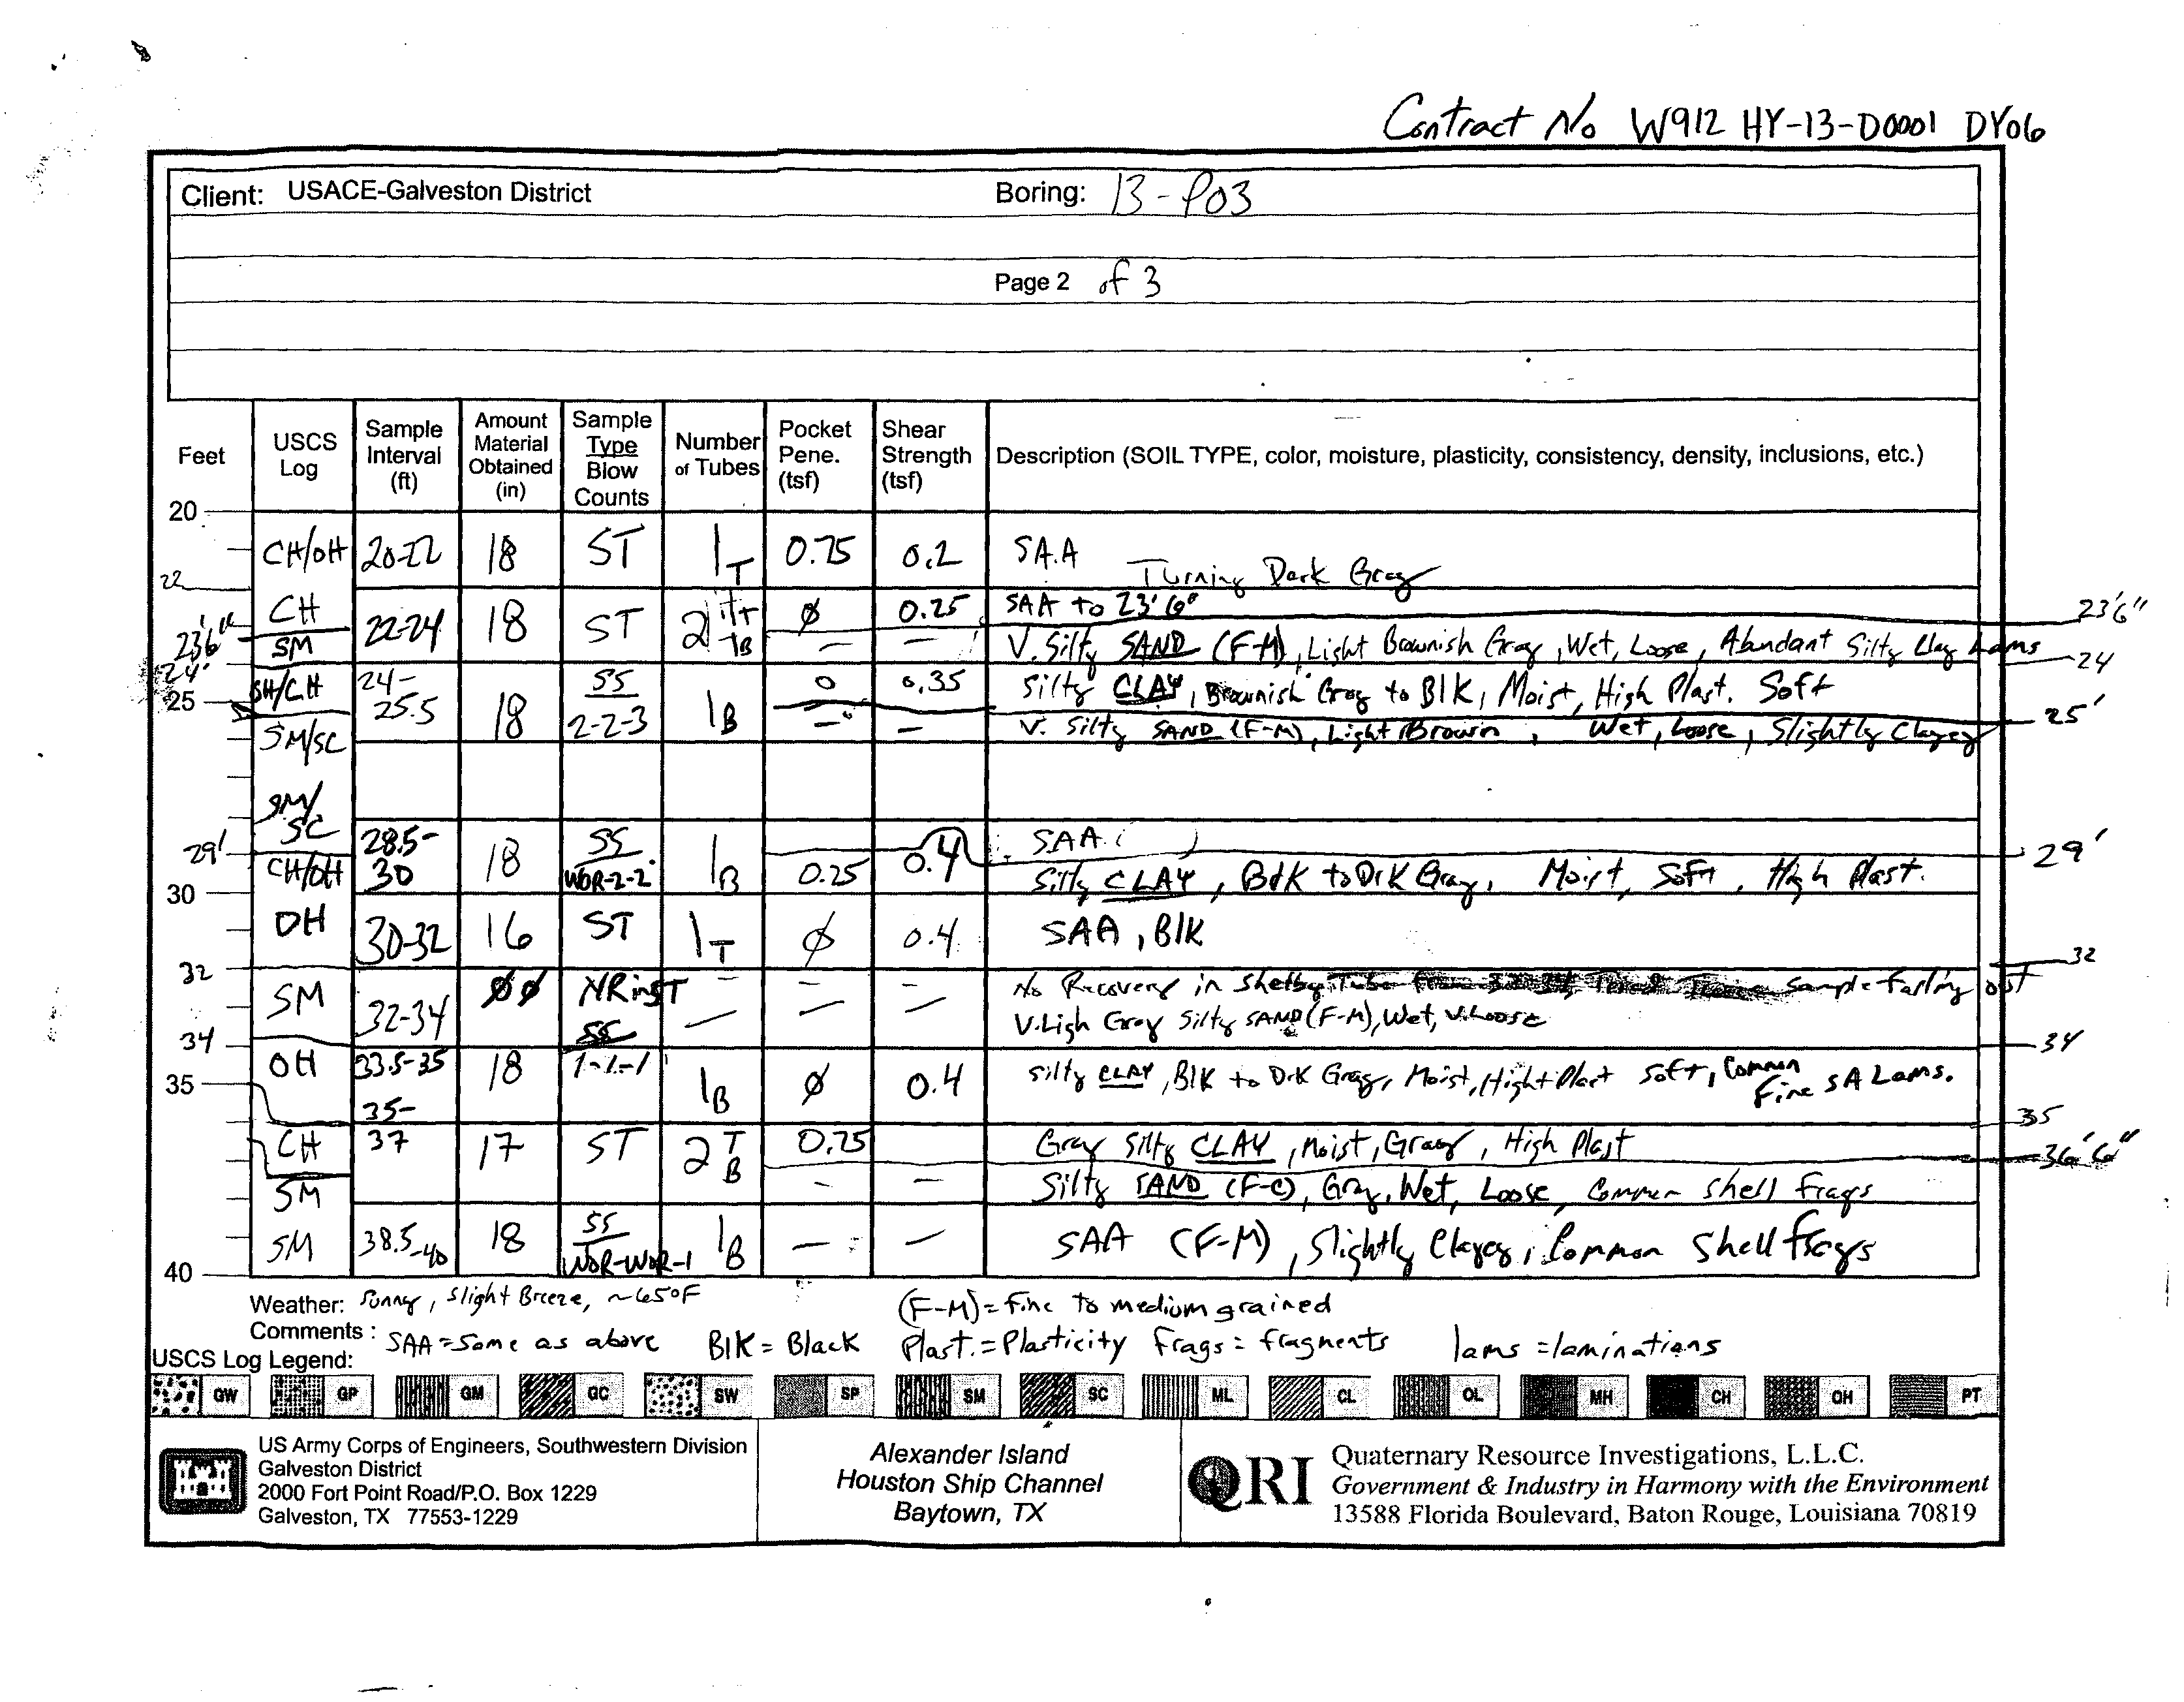 Contract No W912 HY-13-D0001 DY06
Client: USACE-Galveston District Boring: 13-P03
Page 2 of 3
Feet
USCS Log
Sample Interval (ft)
Amount Material Obtained (in)
Sample Type Blow Counts
Number of Tubes
Pocket Pene. (tsf)
Shear Strength (tsf)
Description (SOIL TYPE, color, moisture, plasticity, consistency, density, inclusions, etc.)
20
CH/OH 20-22 18 ST 1T 0.75 0.2 SA.A Turning Dark Gray
22
CH 22-24 18 ST 2 1T 1B Ø 0.25 SAA to 23'6" 23'6"
23'6" SM — — V. Silty SAND (F-M), Light Brownish Gray, Wet, Loose, Abundant Silty Clay Lams
24' 24
OH/CH 24-25.5 18 SS 2-2-3 1B 0 0.35 Silty CLAY, Brownish Gray to Blk, Moist, High Plast. Soft
25 25'
SM/SC — — V. Silty SAND (F-M), Light Brown, Wet, Loose, Slightly Clayey
SM/SC 28.5-30 18 SS WOR-2-2 1B SAA
29' 29'
CH/OH 0.25 0.4 Silty CLAY, Blk to Drk Gray, Moist, Soft, High Plast.
30
OH 30-32 16 ST 1T Ø 0.4 SAA, Blk
32 32
SM 32-34 ØØ NR in ST — — — No Recovery in Shelby Sample Falling out
SS — — — V.Ligh Gray Silty SAND (F-M), Wet, V.Loose
34 34
OH 33.5-35 18 1-1-1 1B Ø 0.4 Silty CLAY, Blk to Drk Gray, Moist, High Plast Soft, Common Fine SA Lams.
35 35
CH 35-37 17 ST 2 T B 0.75 Gray Silty CLAY, Moist, Gray, High Plast
36'6"
SM — — Silty SAND (F-C), Gray, Wet, Loose, Common Shell Frags
SM 38.5-40 18 SS WOR-WOR-1 1B — — SAA (F-M), Slightly Clayey, Common Shell Frags
40
Weather: Sunny, Slight Breeze, ~65°F (F-M)=Fine to medium grained
Comments: SAA=Same as above Blk=Black Plast.=Plasticity Frags=fragments lams=laminations
USCS Log Legend:
GW GP GM GC SW SP SM SC ML CL OL MH CH OH PT
US Army Corps of Engineers, Southwestern Division
Galveston District
2000 Fort Point Road/P.O. Box 1229
Galveston, TX 77553-1229
Alexander Island
Houston Ship Channel
Baytown, TX
QRI
Quaternary Resource Investigations, L.L.C.
Government & Industry in Harmony with the Environment
13588 Florida Boulevard, Baton Rouge, Louisiana 70819